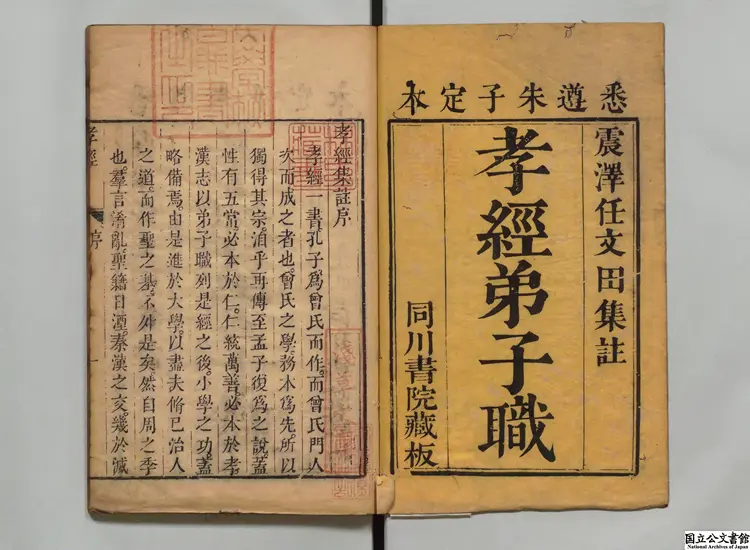 悉遵朱子定本
震澤任文田集註
孝經弟子職
同川書院藏板
孝經集註序
孝經一書孔子爲曾氏而作而曾氏門人
次而成之者也曾氏之學務本爲先所以
獨得其宗洎乎再傳至孟子復爲之說蓋
性有五常必本於仁仁統萬善必本於孝
漢志以弟子職列是經之後小學之功蓋
略備焉由是進於大學以盡夫脩已治人
之道而作聖之基不外是矣然自周之季
也羣言淆亂聖籍日湮秦漢之交幾於滅
孝經
序
国立公文書館
National Archives of Japan